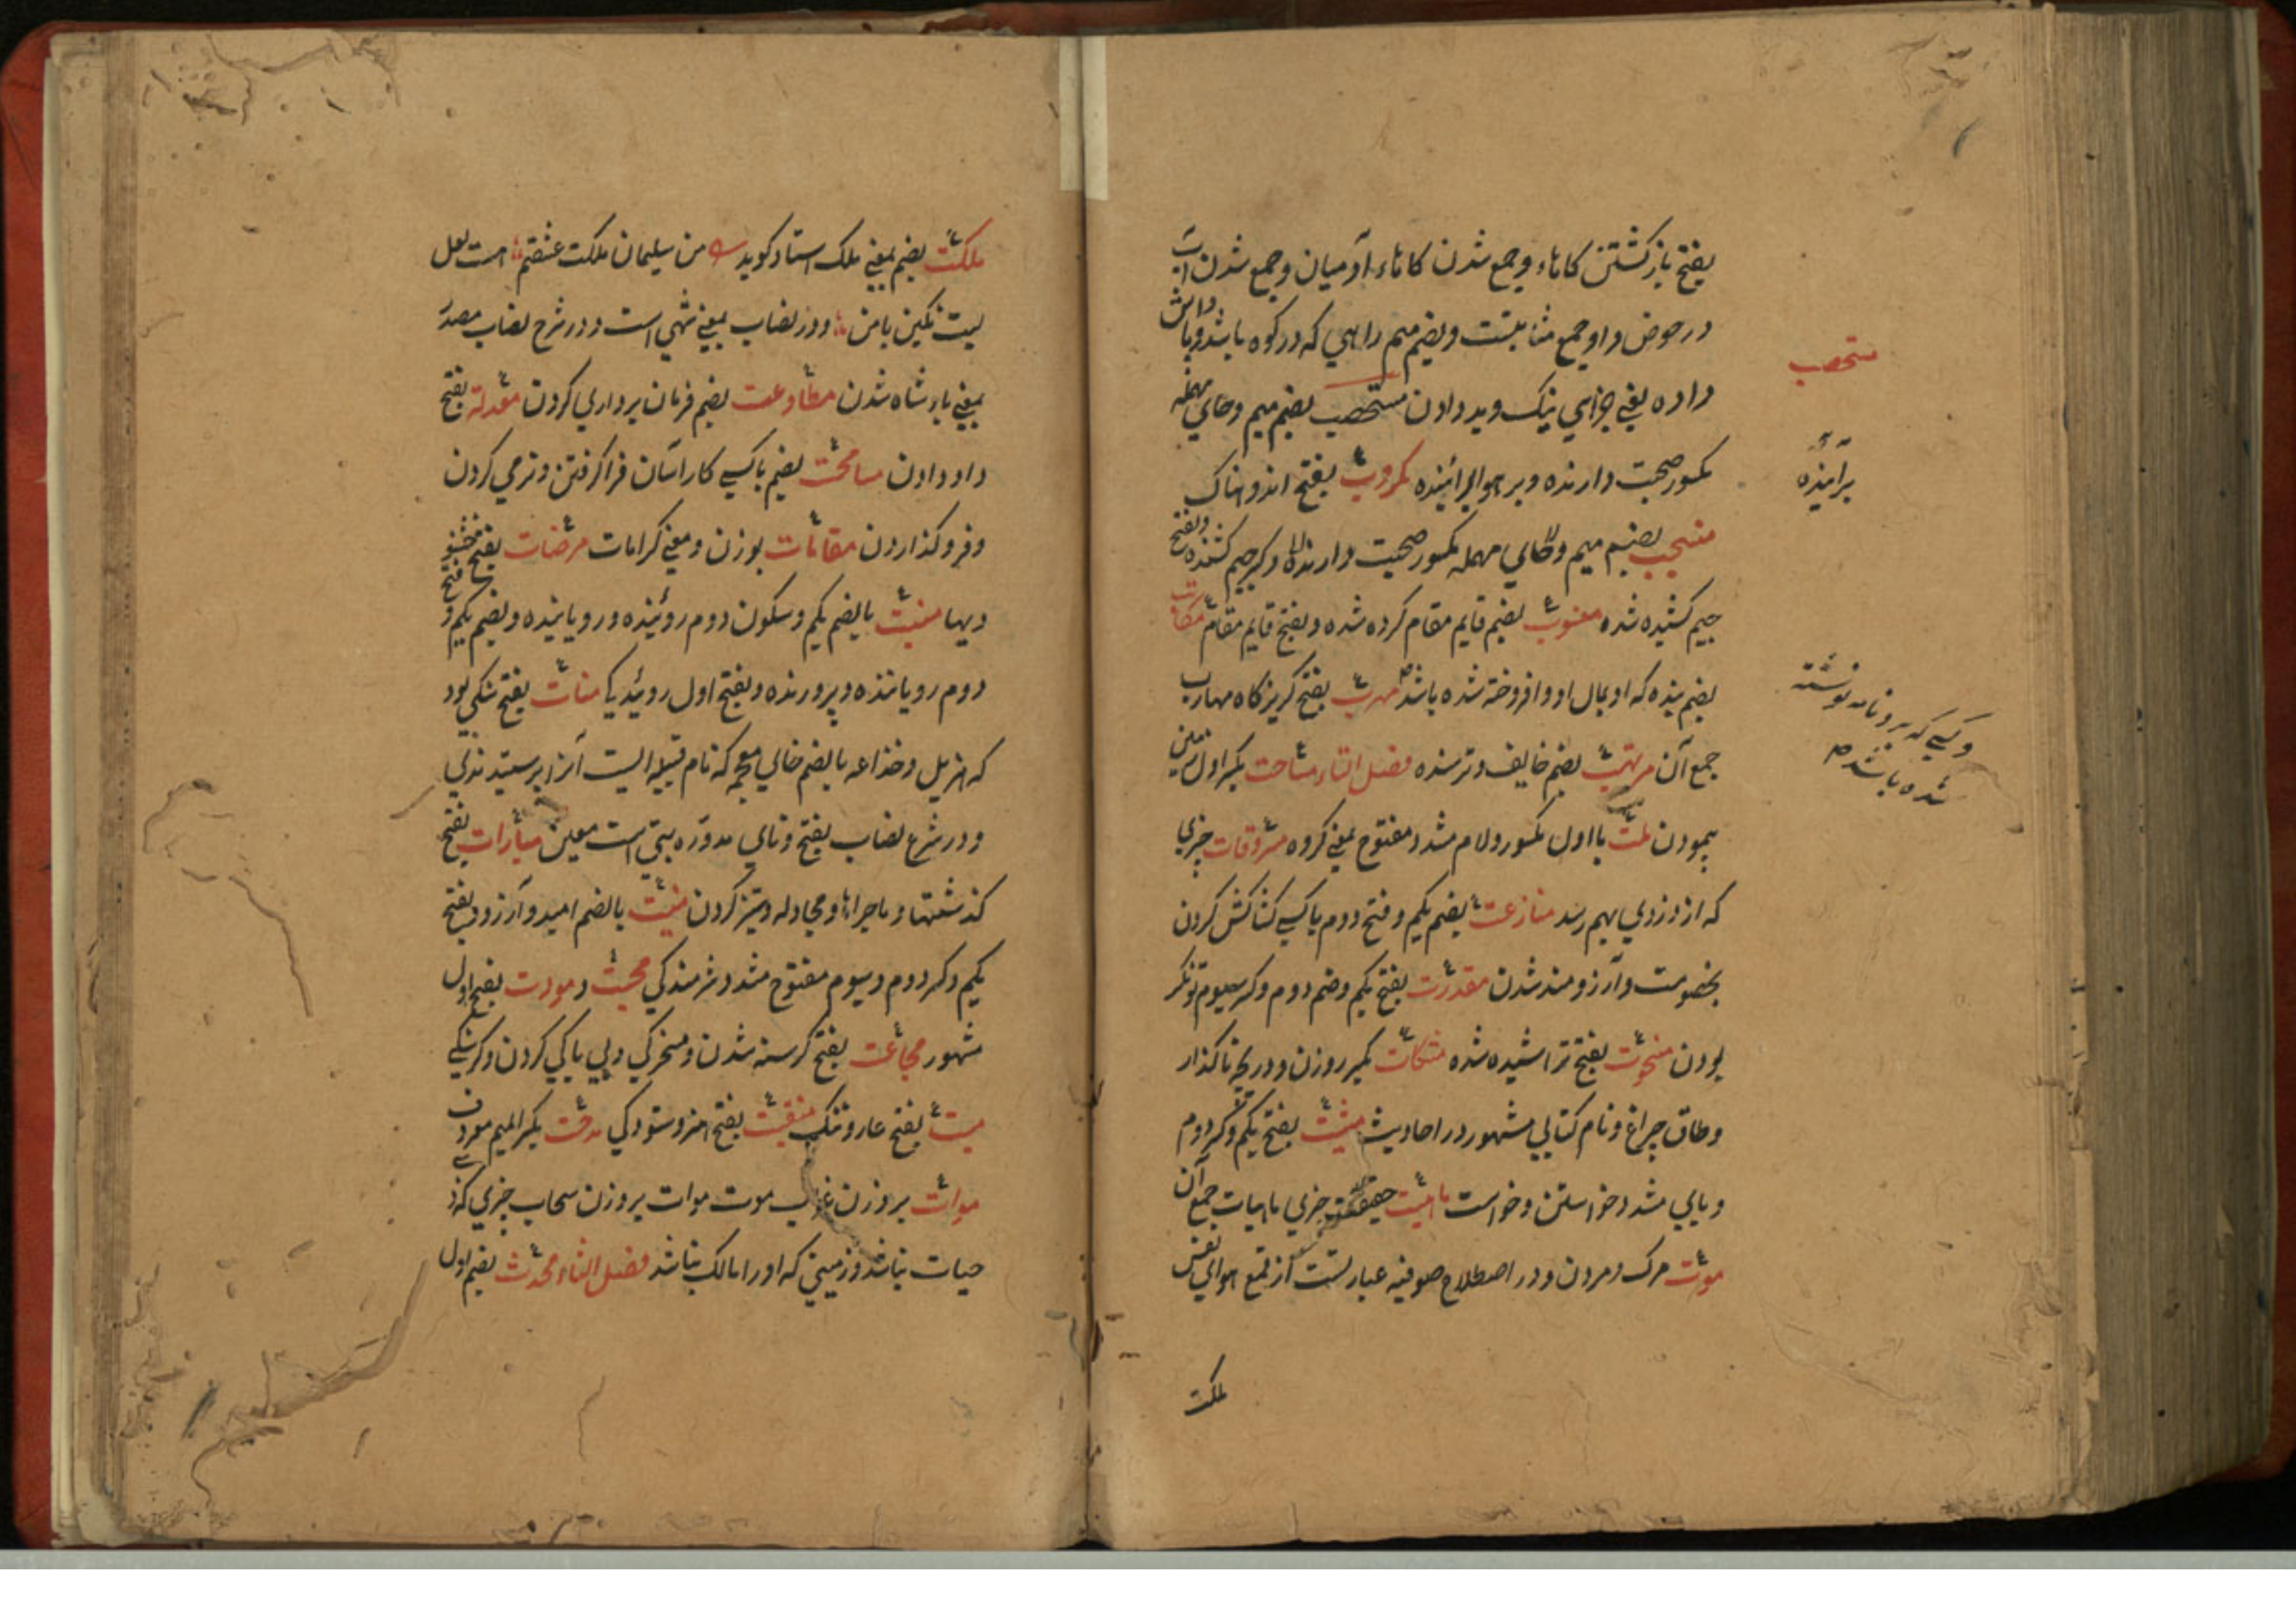 بفتح بازگشتن کاها و جمع شدن کاهاء آدمیان و جمع شدن آب
در حوض و او جمع مثابتست و بضم میم راهی که در کوه باشد و پاداش
داده یعنی جزای نیک و بد دادن مستحصب بضم میم و حای مهمله
مکسور صحبت دارنده و بر هوا برآئینده مکروب بفتح اندوهناک
منسحب بضم میم و حای مهمله مکسور صحبت دارنده و بکسر جیم کشنده و بفتح
جیم کشیده شده منوب بضم قایم مقام کرده شده و بفتح قایم مقام مکاتب
بضم بنده که او بمال او وافروخته شده باشد مهرب بفتح گریزگاه مهارب
جمع آن مرتهب بضم خایف و ترسنده فصل التاء مساحت بکسر اول زمین
پیمودن ملت با اول مکسور و لام مشدد مفتوح بمعنی گروه مسروقات چیزی
که از دزدی بهم رسد منازعت بضم یکم و فتح دوم با کسی کشاکش کردن
بخصومت و آرزومند شدن مقدرت بفتح یکم و ضم دوم و کسر سیوم تونگر
بودن منحوت بفتح تراشیده شده مشکات بکسر روزن و دریچه ناگذار
و طاق چراغ و نام کتابی مشهور در احادیث مشیت بفتح یکم و کسر دوم
و یای مشدد خواستن و خواست ماهیت حقیقت چیزی ماهیات جمع آن
موت مرک و مردن و در اصطلاح صوفیه عبارتست از قمع هوای نفس
ملکت
مستحصب
برآئنده
و کسی که برو نامه نوشته
شده باشد
ملکت بضم بمعنی ملک استاد گوید من سلیمان ملکت عشقم است لعل
لبت نگین با من و در نصاب بمعنی شهی است و در شرح نصاب مصدر
بمعنی بادشاه شدن مطاوعت بضم فرمان برداری کردن معدلة بفتح
داد دادن مسامحت بضم با کسی کار آسان فراگرفتن و نرمی کردن
و فرو گذاردن مقامات بوزن و معنی کرامات مرضات بفتح خشنو
دیها منبت بالضم یکم و سکون دوم روئنده و رویاننده و بضم یکم و فتح
دوم رویاننده و پرورنده و بفتح اول روئیدگی منات بفتح سنگی بود
که هزیل و خذاعه بالضم خای معجمه که نام قبیله ایست آنرا پرستیدندی
و در شرح نصاب بفتح و تای مدوره بتی است معین مبارات بفتح
گذشتها و ماجراها و مجادله و تیز کردن منیت بالضم امید و آرزو و بفتح
یکم و کسر دوم و سیوم مفتوح مشدد شرمندگی محبت و مودت بفتح اول
مشهور مجاعت بفتح گرسنه شدن و مسخرگی و بی باکی کردن و گرسنگی
مسبت بفتح عار و ننگ منقبت بفتح هنر و ستودگی مدقت بکسر المیم معروف
موات بر وزن غراب موت موات بر وزن سحاب چیزی که ذی
حیات نباشد و زمینی که او را مالک نباشد فصل الثاء محدث بضم اول